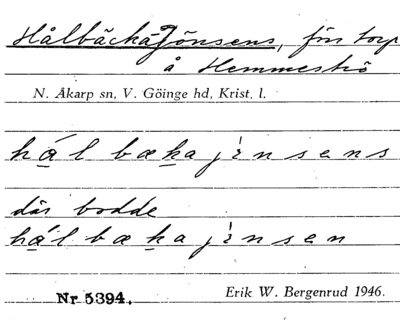 Hålbäcka Jönsens, för torp
å Hemmeströ
N. Åkarp sn, V. Göinge hd, Krist. l.
hål bæka jènsens
där bodde
hål bæka jènsen
Nr 5394. Erik W. Bergenrud 1946.